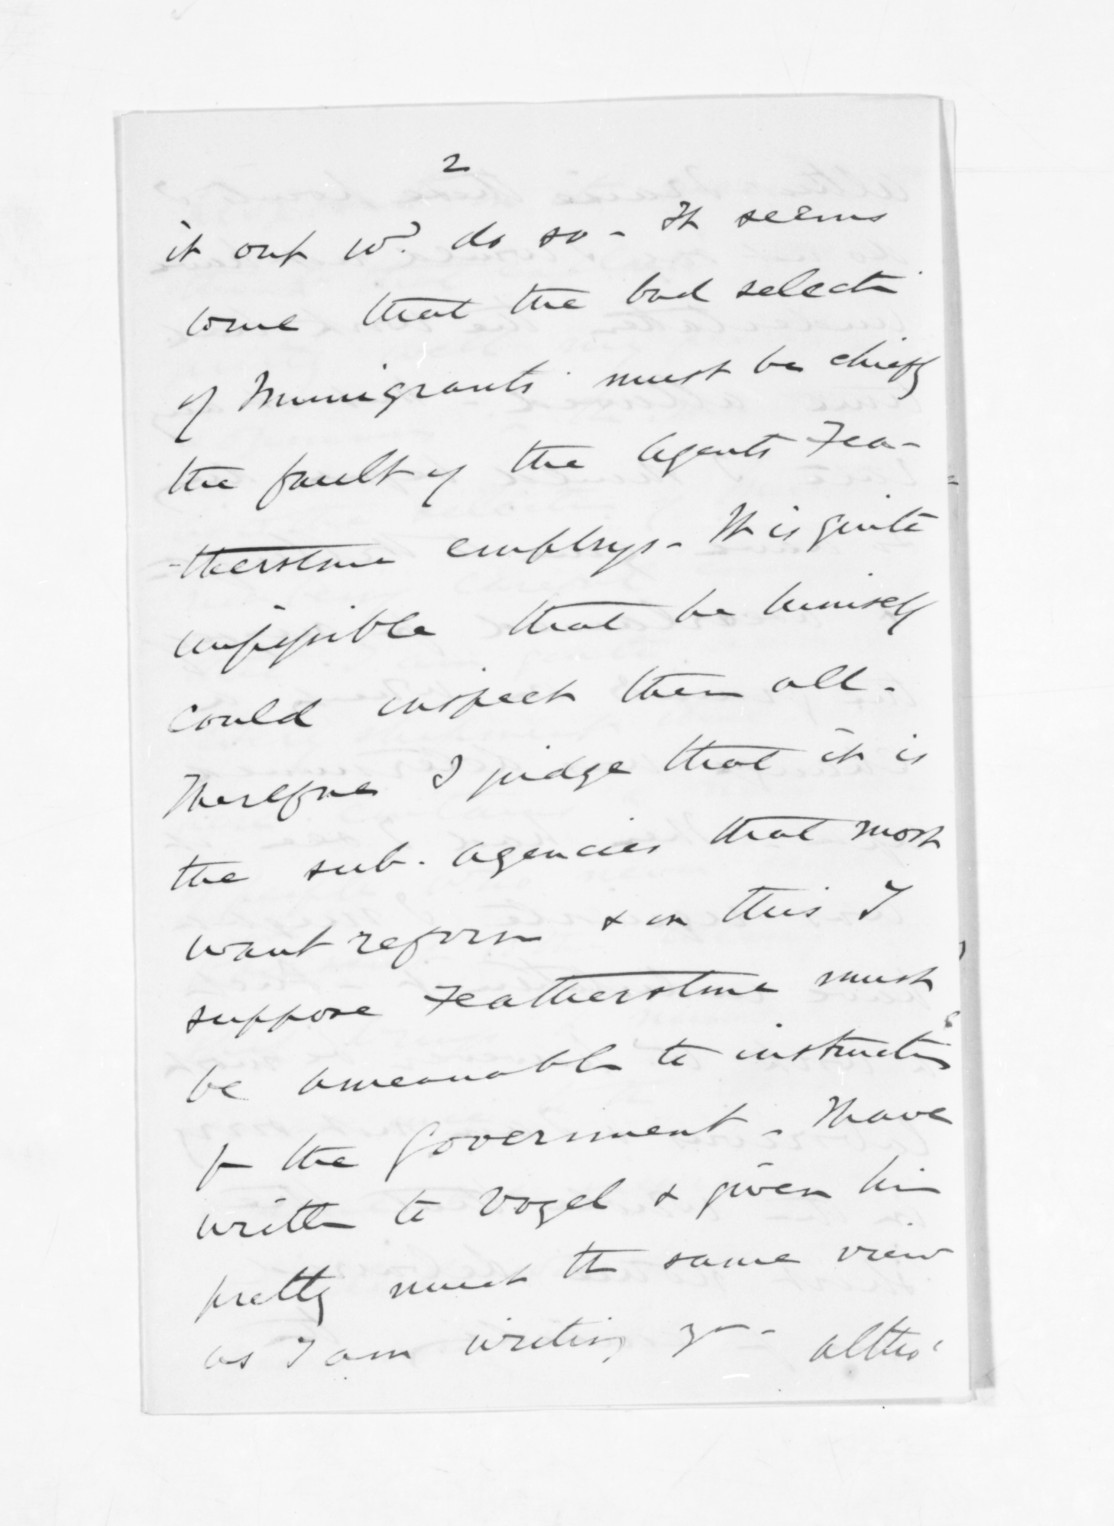 2
it out wd. do so - It seems
to me that the bad selecti
of Immigrants must be chiefly
the fault of the agents Fea-
-therstone employs - It is quite
impossible that he himself
could inspect them all.
Therefore I judge that it is
the sub. agencies that most
want reform & in this I
suppose Featherstone must
be ameanable to instructions
fm the Government - I have
written to Vogel & given him
pretty much the same view
as I am writing yr - altho'